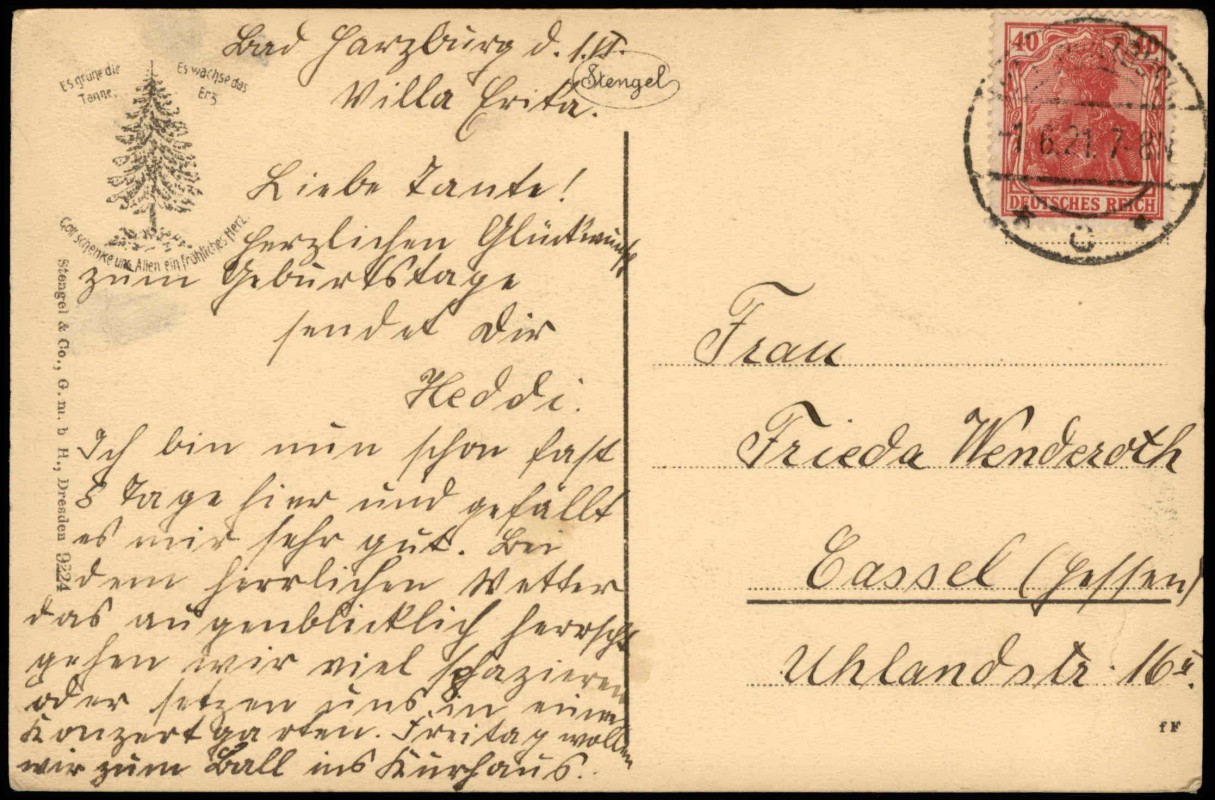 Bad Harzburg d. 1.VI.
Villa Erika.
Stengel
Es grüne die
Tanne,
Es wachse das
Erz
Gott schenke uns Allen ein fröhliches Herz.
Liebe Tante!
Herzlichen Glückwunsch
zum Geburtstage
sendet Dir
Heddi.
Ich bin nun schon fast
8 Tage hier und gefällt
es mir sehr gut. Bei
dem herrlichen Wetter
das augenblicklich herrscht
gehen wir viel spazieren
oder setzen uns in einen
Konzertgarten. Freitag wollen
wir zum Ball ins Kurhaus.
Stengel & Co., G. m. b H., Dresden 9224
40 40
DEUTSCHES REICH
-1.6.21. 7-8N
* c *
Frau
Frieda Wenderoth
Cassel (Hessen)
Uhlandstr. 16
fF